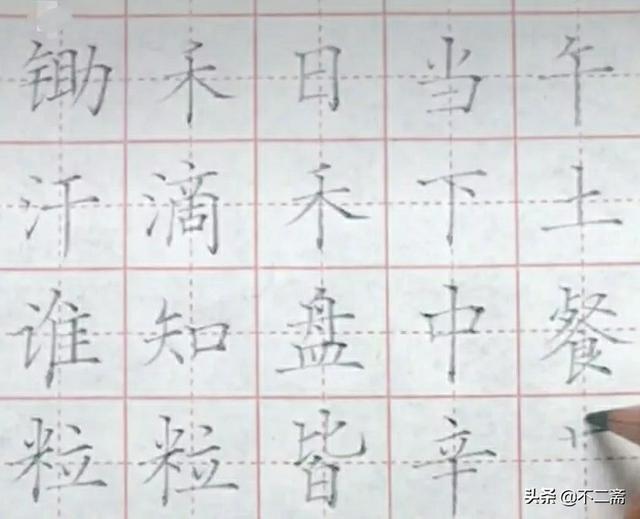 锄禾日当午
汗滴禾下土
谁知盘中餐
粒粒皆辛
头条 @不二斋